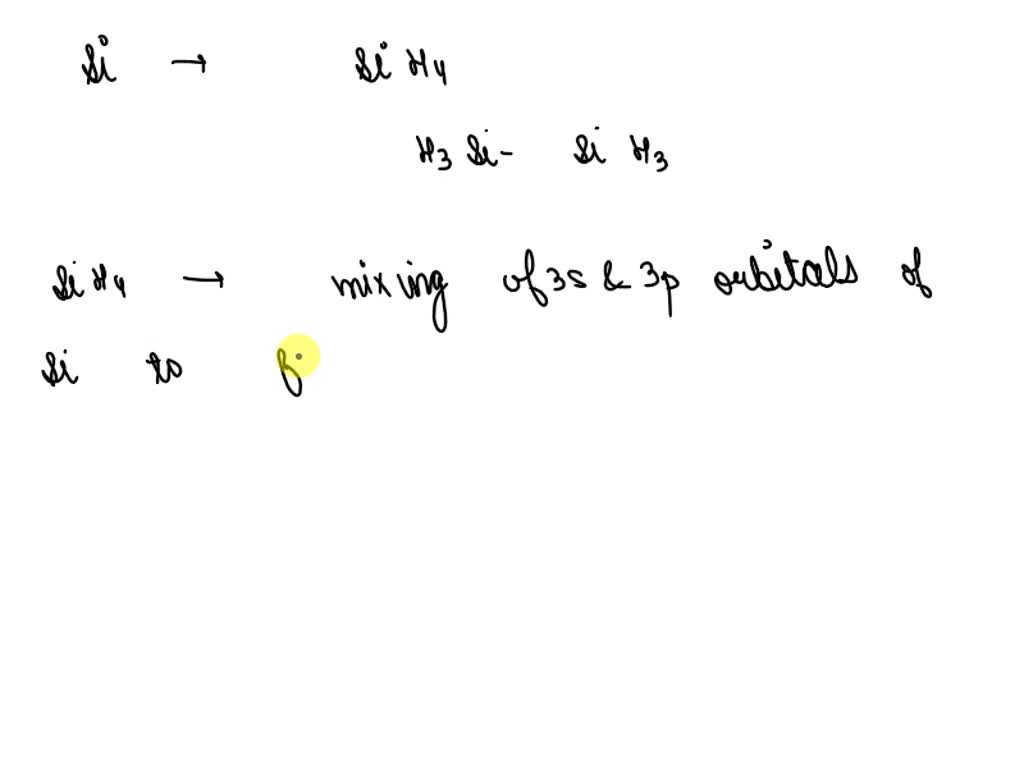 Si → SiH4
H3Si- SiH3
SiH4 → mixing of 3s & 3p orbitals of
Si to